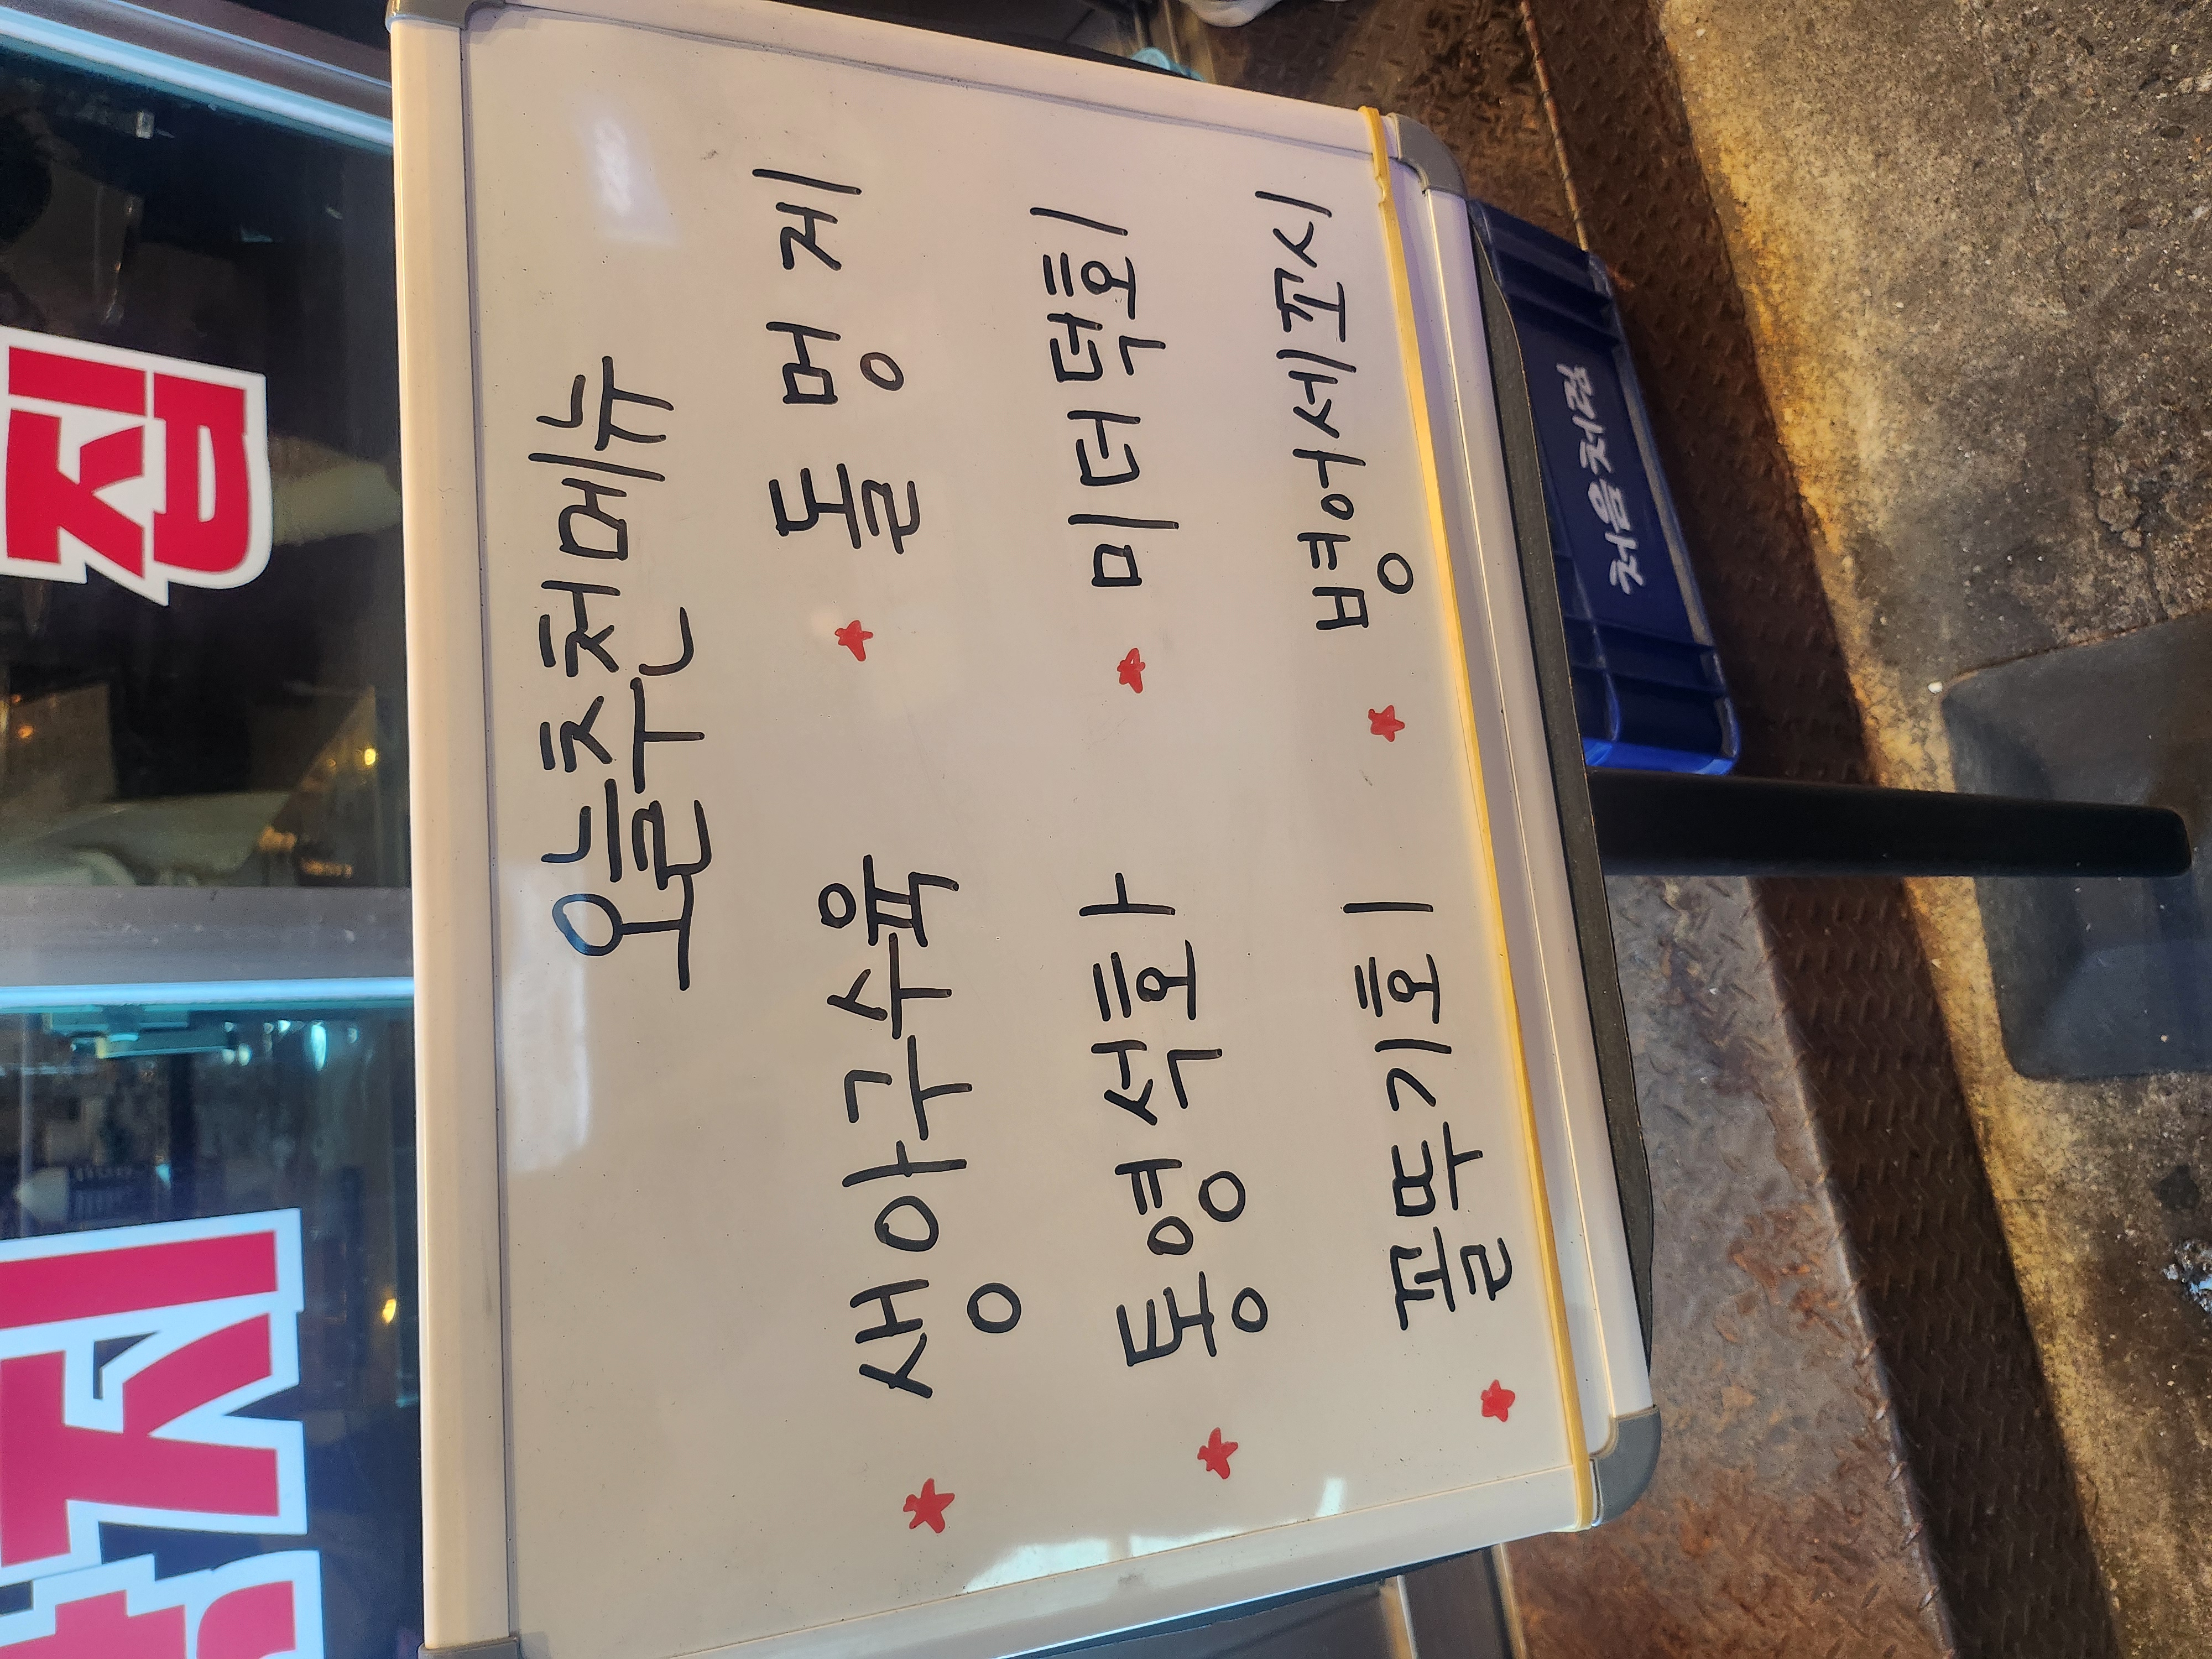 오늘추천메뉴
★ 생아구수육 ★ 돌멍게
★ 통영석화 ★ 미더덕회
★ 꼴뚜기회 ★ 병어세꼬시
처음처럼